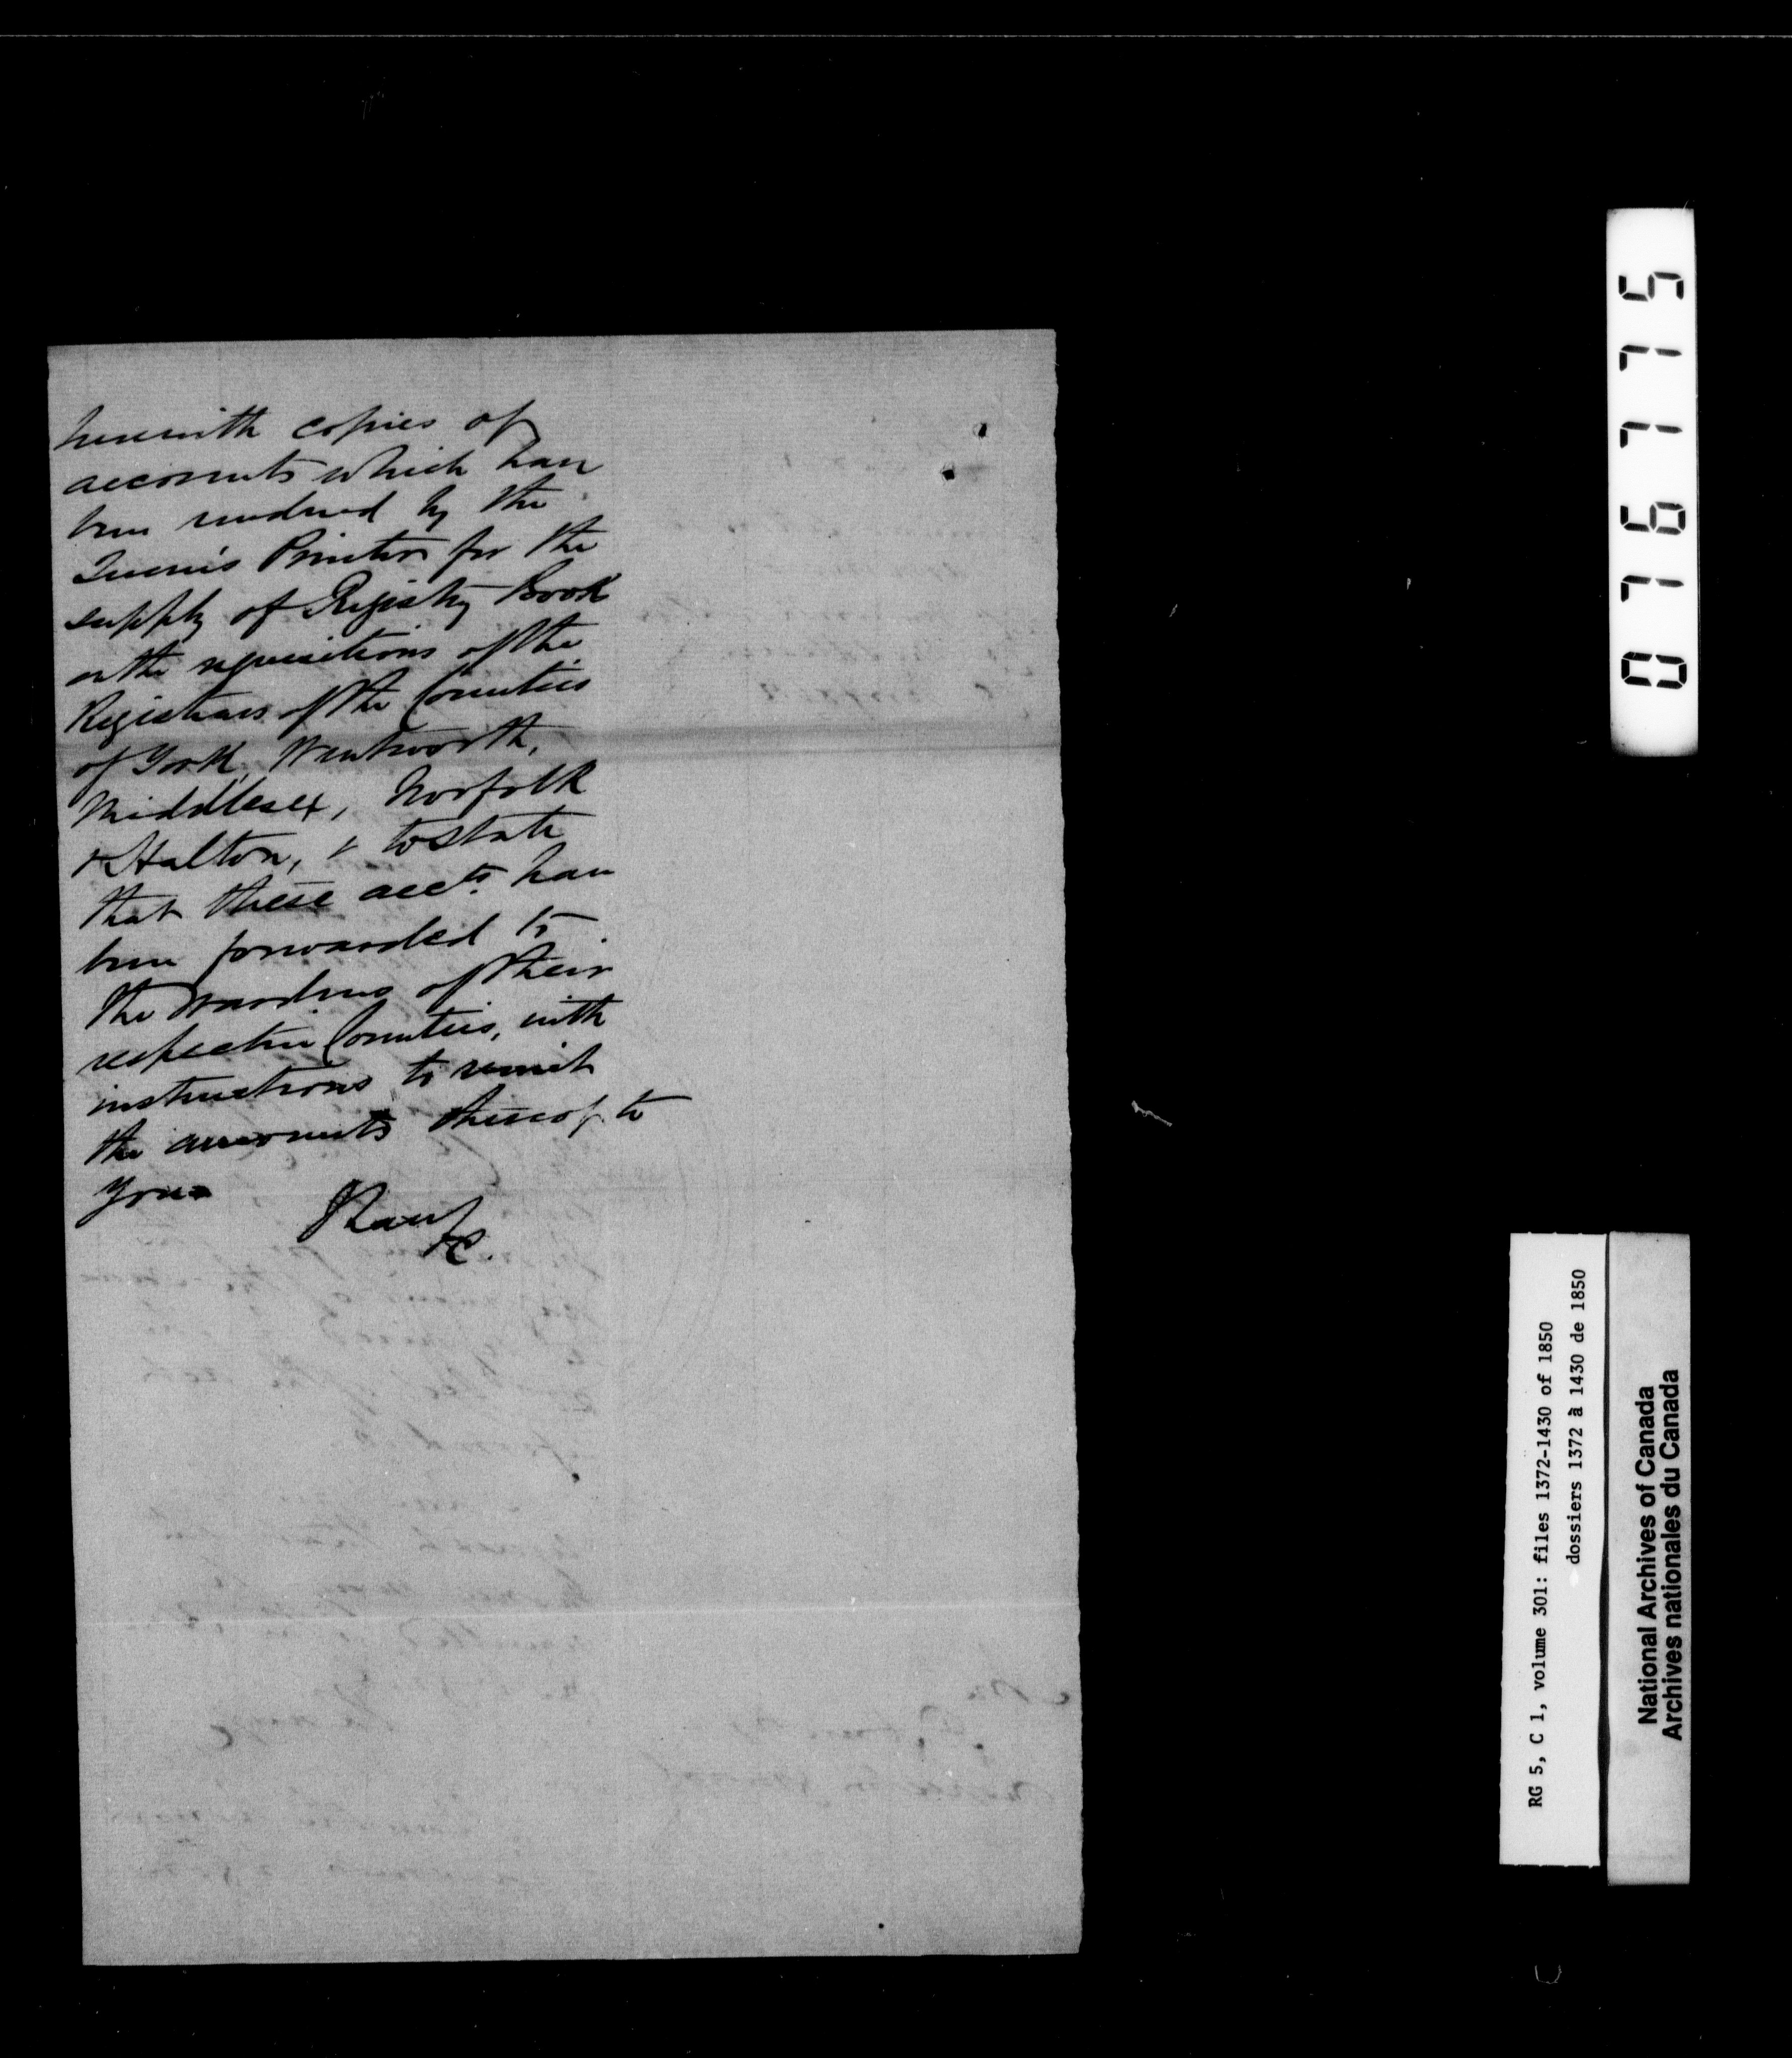 herewith copies of
accounts which have
been rendered by the
Queen's Printer for the
supply of Registry Book
on the requisitions of the
Registrars of the Counties
of York, Wentworth,
Middlesex, Norfolk
& Halton, & to state
that these accts. have
been forwarded to
the Wardens of their
respective Counties, with
instructions to remit
the amounts thereof to
you.
I have
&c.
076775
RG 5, C 1, volume 301: files 1372-1430 of 1850
dossiers 1372 à 1430 de 1850
National Archives of Canada
Archives nationales du Canada